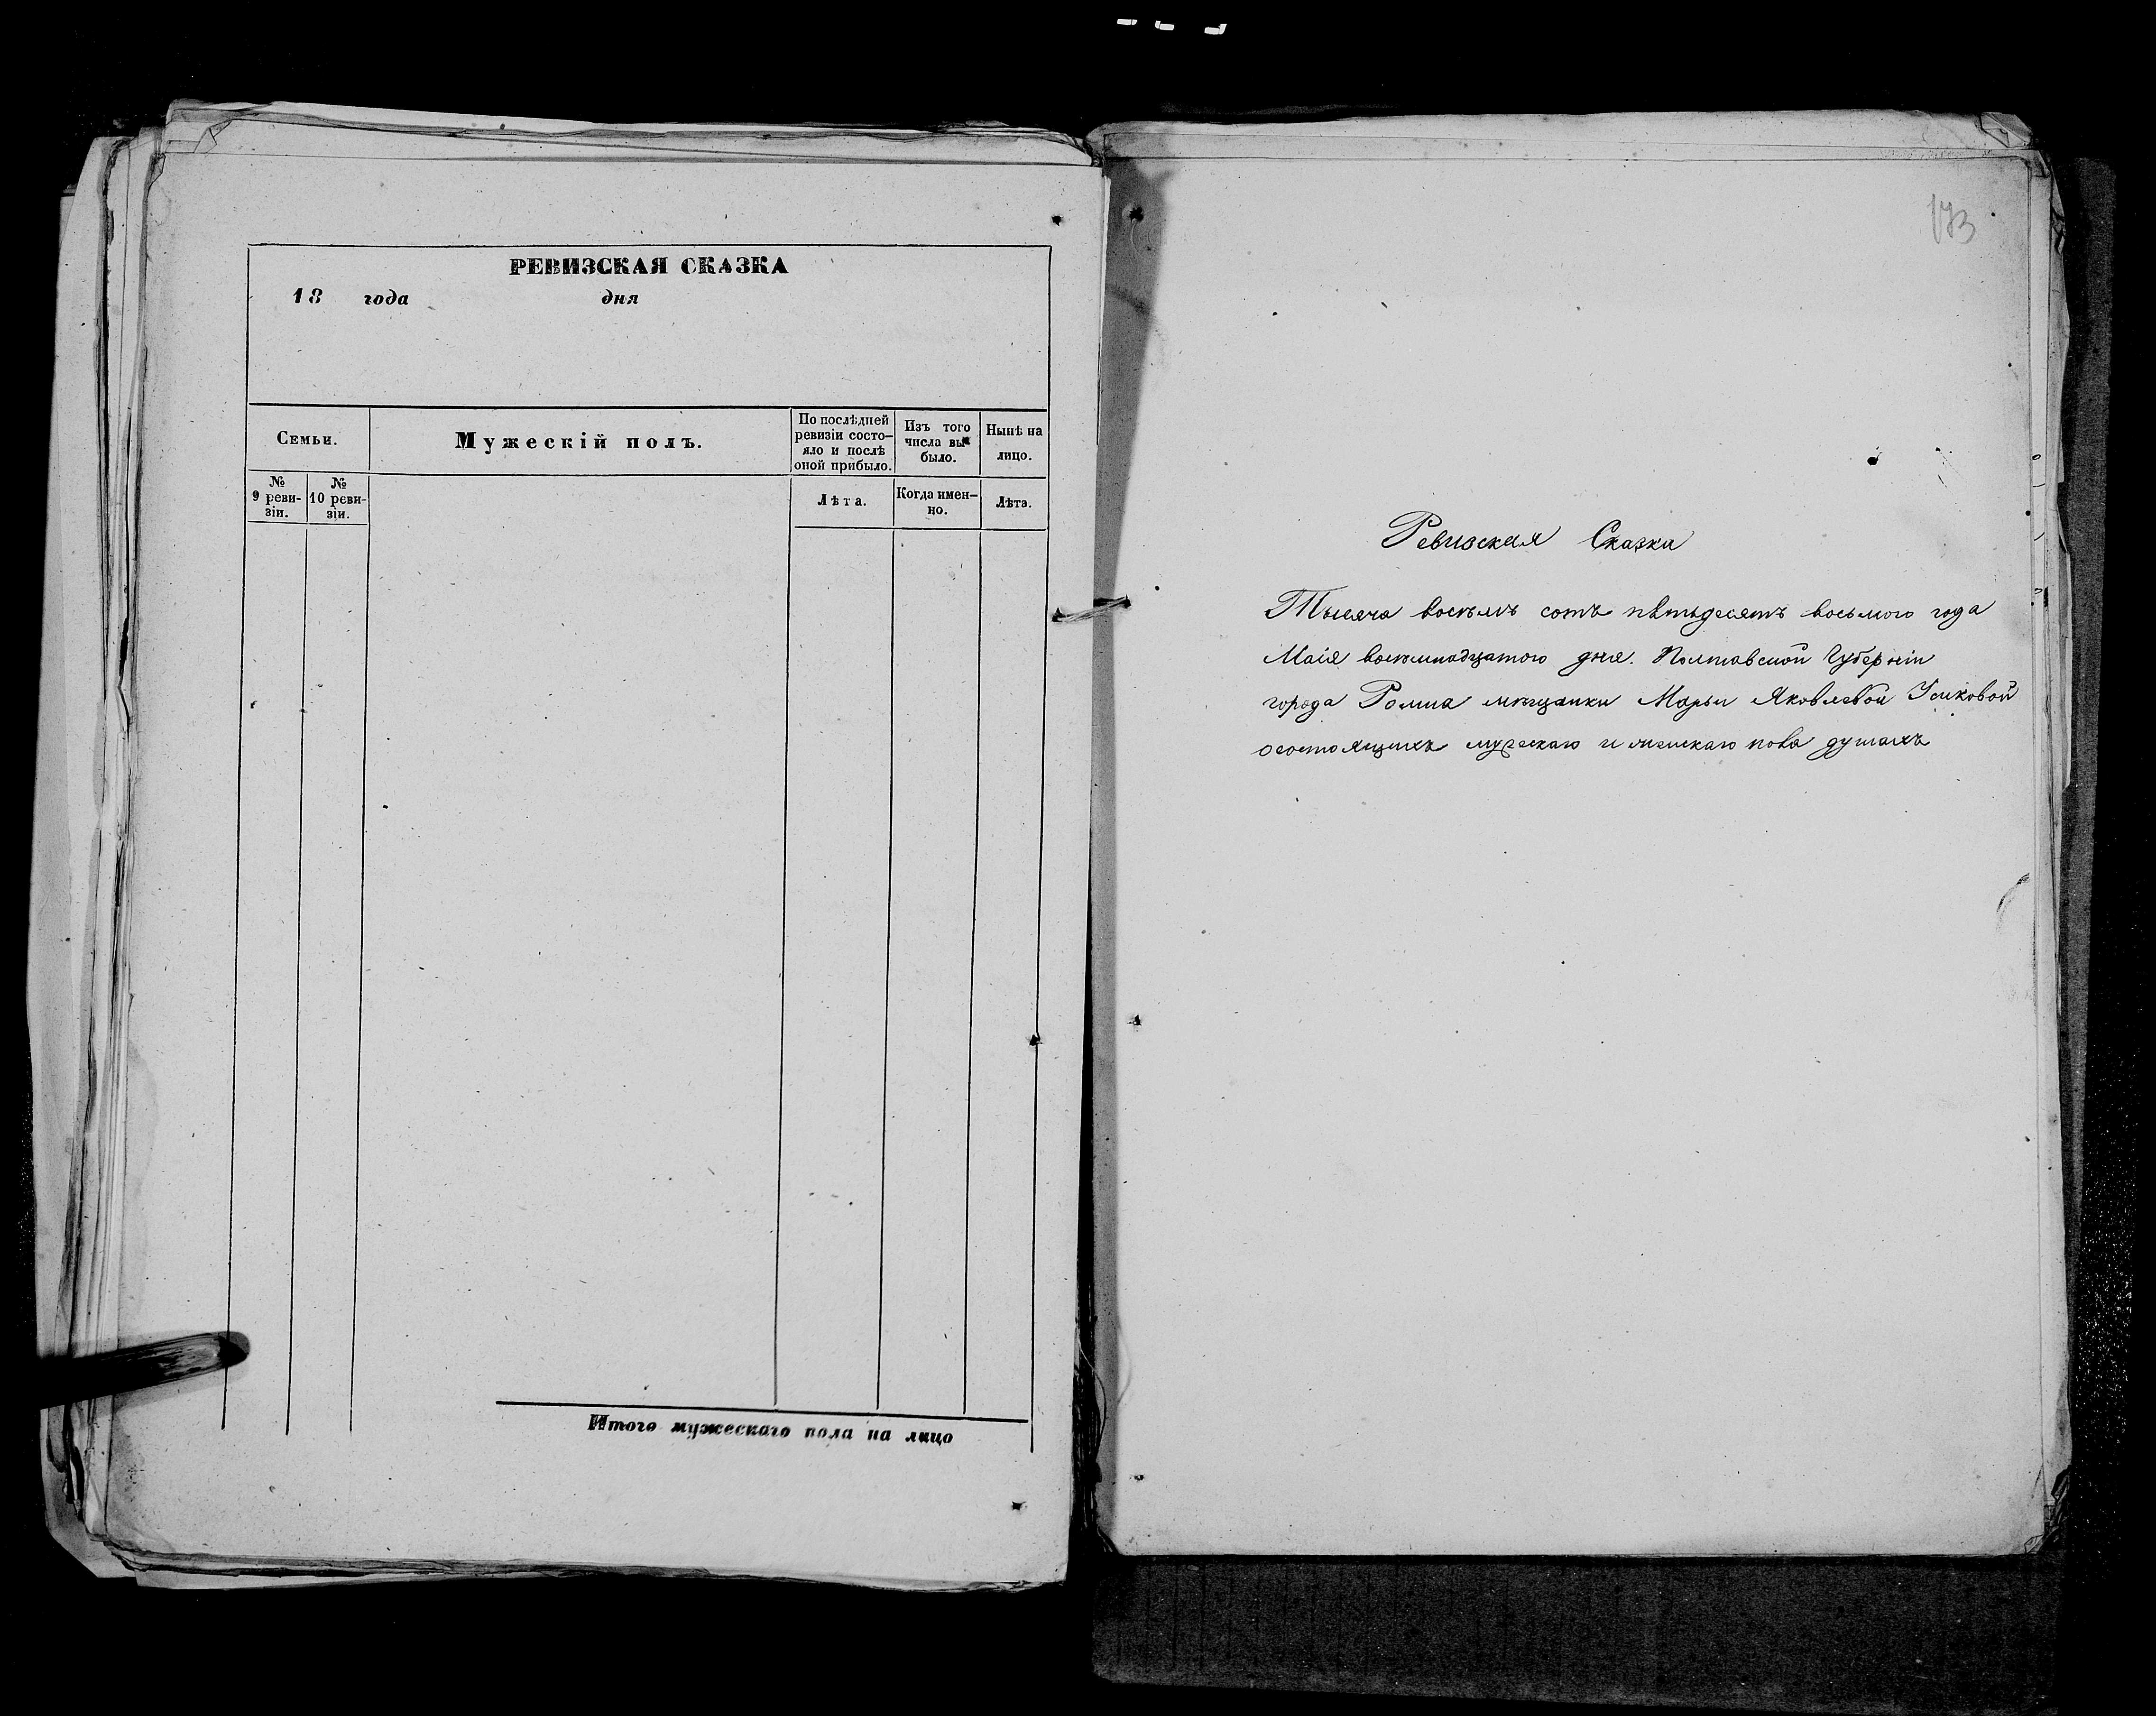 РЕВИЗСКАЯ СКАЗКА
18 года дня
Семьи.
Мужескій полъ.
По послѣдней
ревизіи состо-
яло и послѣ
оной прибыло.
Изъ того
числа вы-
было.
Нынѣ на
лицо.
№
9 реви-
зіи.
№
10 реви-
зіи.
Лѣта.
Когда имен-
но.
Лѣта.
Итого мужескаго пола на лицо
173
Ревизская Сказка
Тысяча восемь сотъ пятьдесятъ восьмого года
Маія восемнадцатого дня. Полтавской Губерніи
города Ромна мѣщанки Марьи Яковлевой
осостоящихъ мужескаго и женскаго пола душахъ